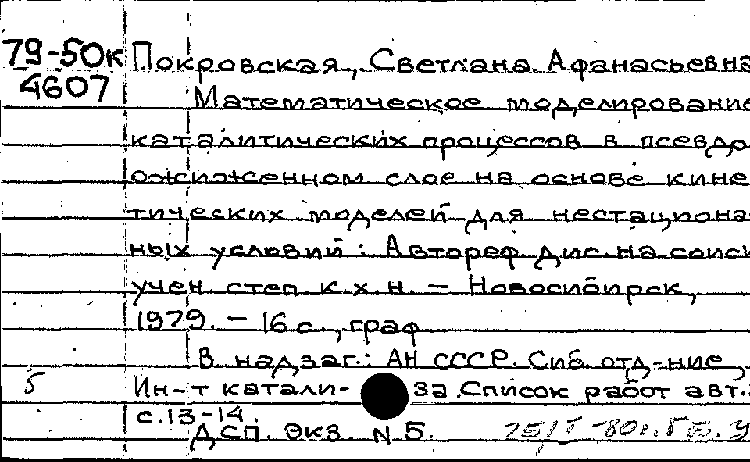 79-50к Покровская, Светлана Афанасьевна
4607 Математическое моделирование
каталитических процессов в псевдо-
ожиженном слое на основе кине
тических моделей для нестациона
ных условий : Автореф дис. на соиск
учен степ к. х. н. — Новосибирск,
1979. — 16 с., граф
В надзаг.: АН СССР. Сиб. отд-ние,
5 Ин-т катали- за. Список работ авт.:
с. 13-14.
ДСП. Экз. N 5.